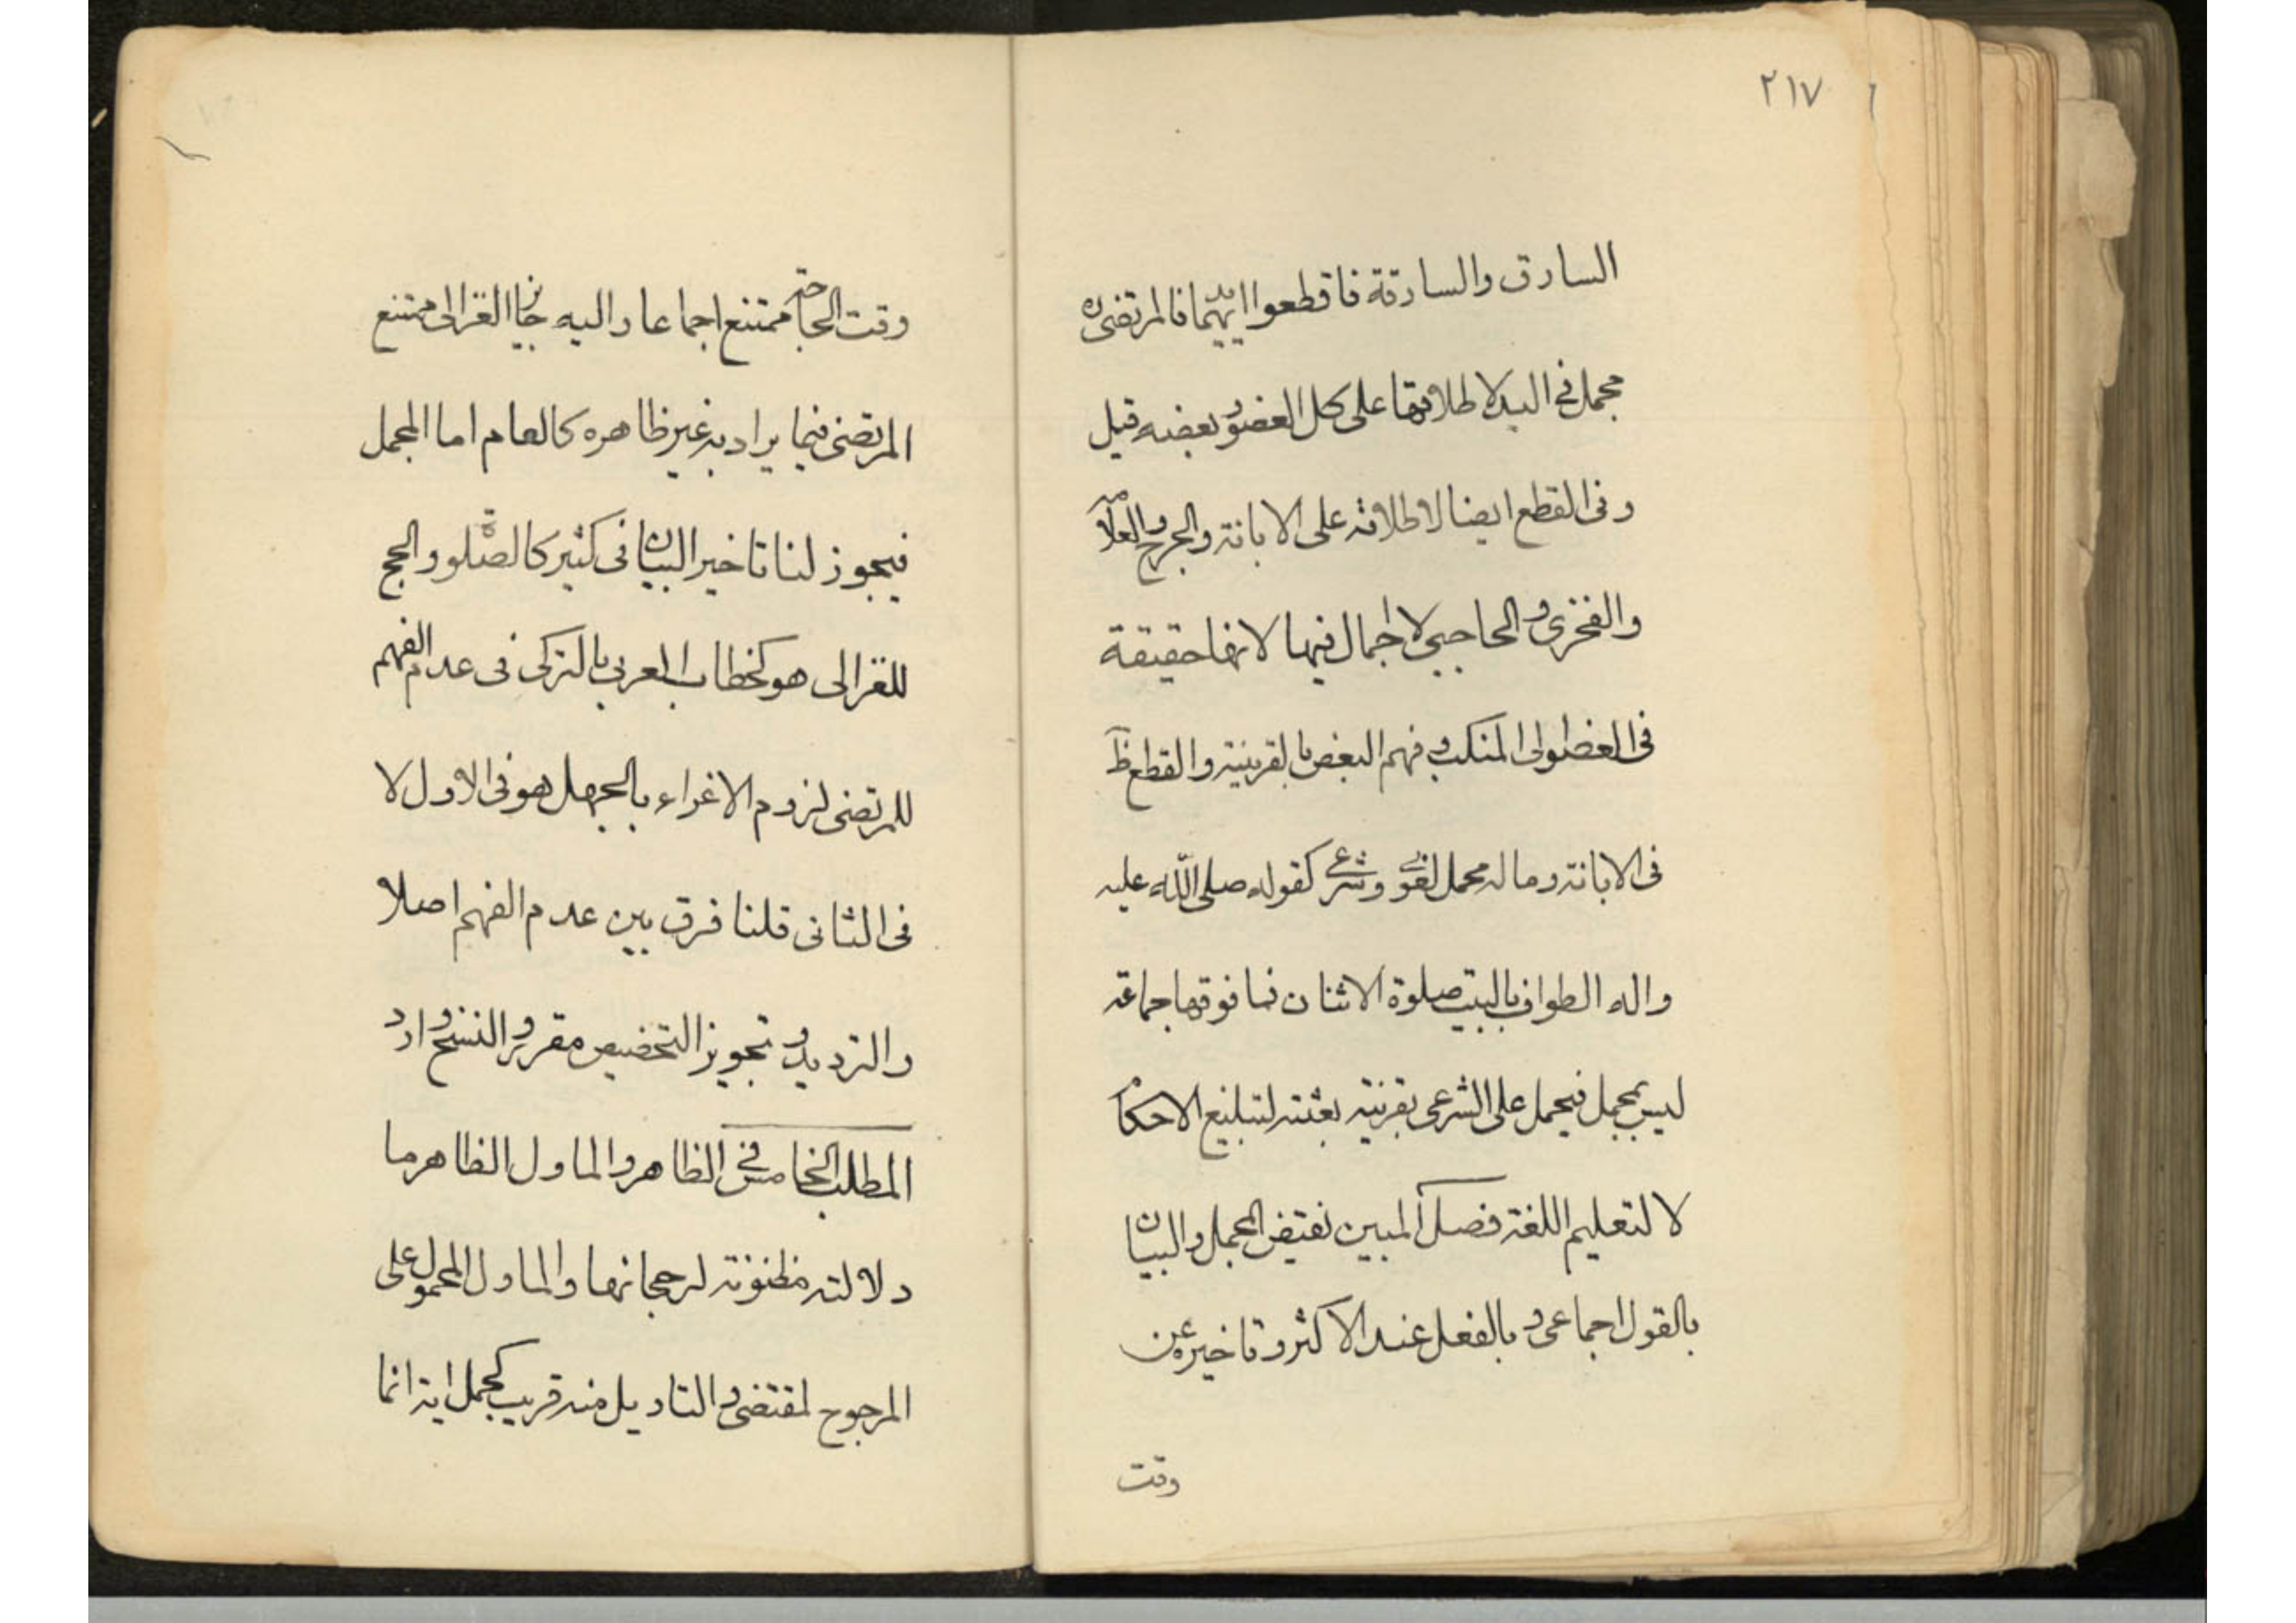 ٢١٧
السارق والسارقة فاقطعوا ايديهما فالمرتضى ره
مجمل فى اليد لاطلاقها على كل العضو وبعضه قيل
وفى القطع ايضا لاطلاقه على الابانة والجرح والعلامه
والفخرى والحاجبى لا اجمال فيها لانها حقيقة
فى العضو الى المنكب وفهم البعض بالقرينة والقطع ظ
فى الابانة وماله محمل لغوى وشرعى كقوله صلى الله عليه
واله الطواف بالبيت صلوة الاثنان فما فوقها جماعة
ليس بمجمل فيحمل على الشرعى بقرينة بعثته لتبليغ الاحكام
لا لتعليم اللغة فصل المبين نقيض المجمل والبيان
بالقول اجماعى وبالفعل عند الاكثر وتاخيره عن
وقت
وقت الحاجة ممتنع اجماعا واليه جايز الغزالى ممتنع
المرتضى فيما يراد به غير ظاهره كالعام اما المجمل
فيجوز لنا تاخير البيان فى كثير كالصلوة والحج
للغزالى هو كخطاب العربى بالتركى فى عدم الفهم
للمرتضى لزوم الاغراء بالجهل هو فى الاول لا
فى الثانى قلنا فرق بين عدم الفهم اصلا
والترديد وتجويز التخصيص مقرر والنسخ وارد
المطلب الخامس فى الظاهر والماول الظاهر ما
دلالته مظنونة لرجحانها والماول المحمول على
المرجوح لمقتضى والتاويل منه قريب كحمل اية انما